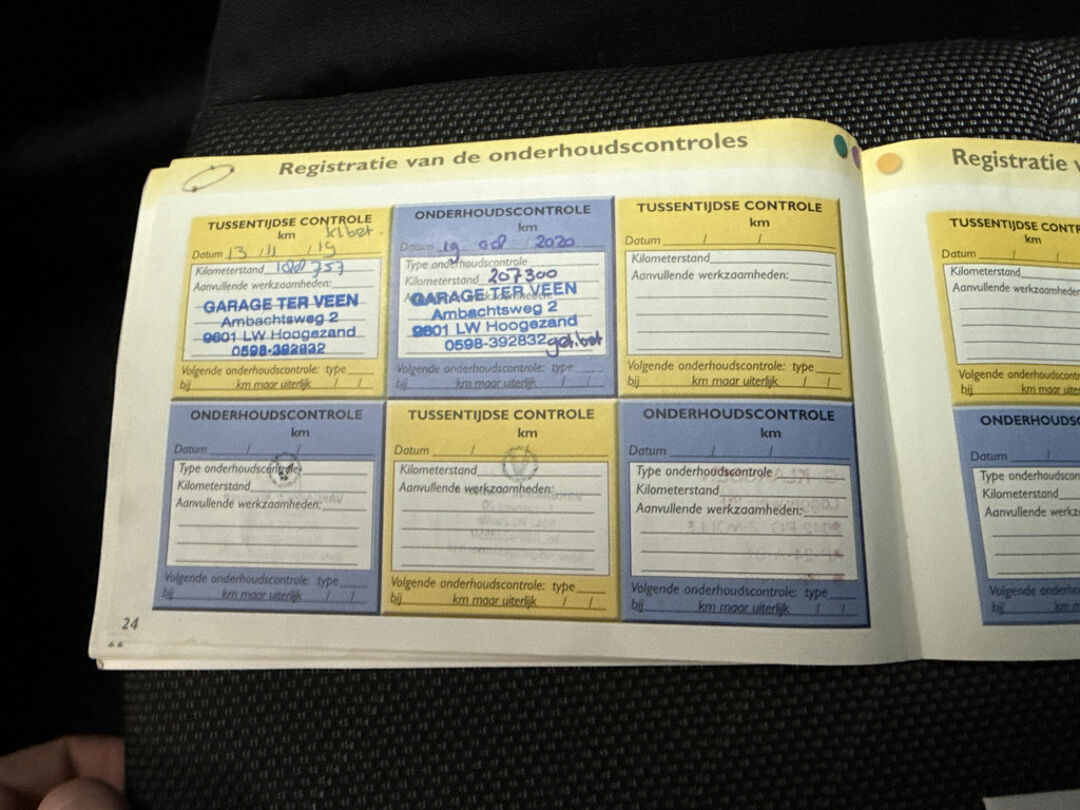 Registratie van de onderhoudscontroles
TUSSENTIJDSE CONTROLE
km
Datum 13 / 11 / 19
Kilometerstand 188 757
Aanvullende werkzaamheden:
GARAGE TER VEEN
Ambachtsweg 2
9601 LW Hoogezand
0598-392832
Volgende onderhoudscontrole: type
bij km maar uiterlijk / /
ONDERHOUDSCONTROLE
km
Datum 19 2020
Type onderhoudscontrole
Kilometerstand 207300
GARAGE TER VEEN
Ambachtsweg 2
9601 LW Hoogezand
0598-392832
Volgende onderhoudscontrole: type
bij km maar uiterlijk / /
TUSSENTIJDSE CONTROLE
km
Datum / /
Kilometerstand
Aanvullende werkzaamheden:
Volgende onderhoudscontrole: type
bij km maar uiterlijk / /
ONDERHOUDSCONTROLE
km
Datum / /
Type onderhoudscontrole
Kilometerstand
Aanvullende werkzaamheden:
Volgende onderhoudscontrole: type
bij km maar uiterlijk / /
TUSSENTIJDSE CONTROLE
km
Datum / /
Kilometerstand
Aanvullende werkzaamheden:
Volgende onderhoudscontrole: type
bij km maar uiterlijk / /
ONDERHOUDSCONTROLE
km
Datum / /
Type onderhoudscontrole
Kilometerstand
Aanvullende werkzaamheden:
Volgende onderhoudscontrole: type
bij km maar uiterlijk / /
24
Registratie
TUSSENTIJDSE
km
Datum / /
Kilometerstand
Aanvullende
Volgende
bij km maar
km
Datum /
Type
Kilometerstand
Aanvullende
Volgende
bij